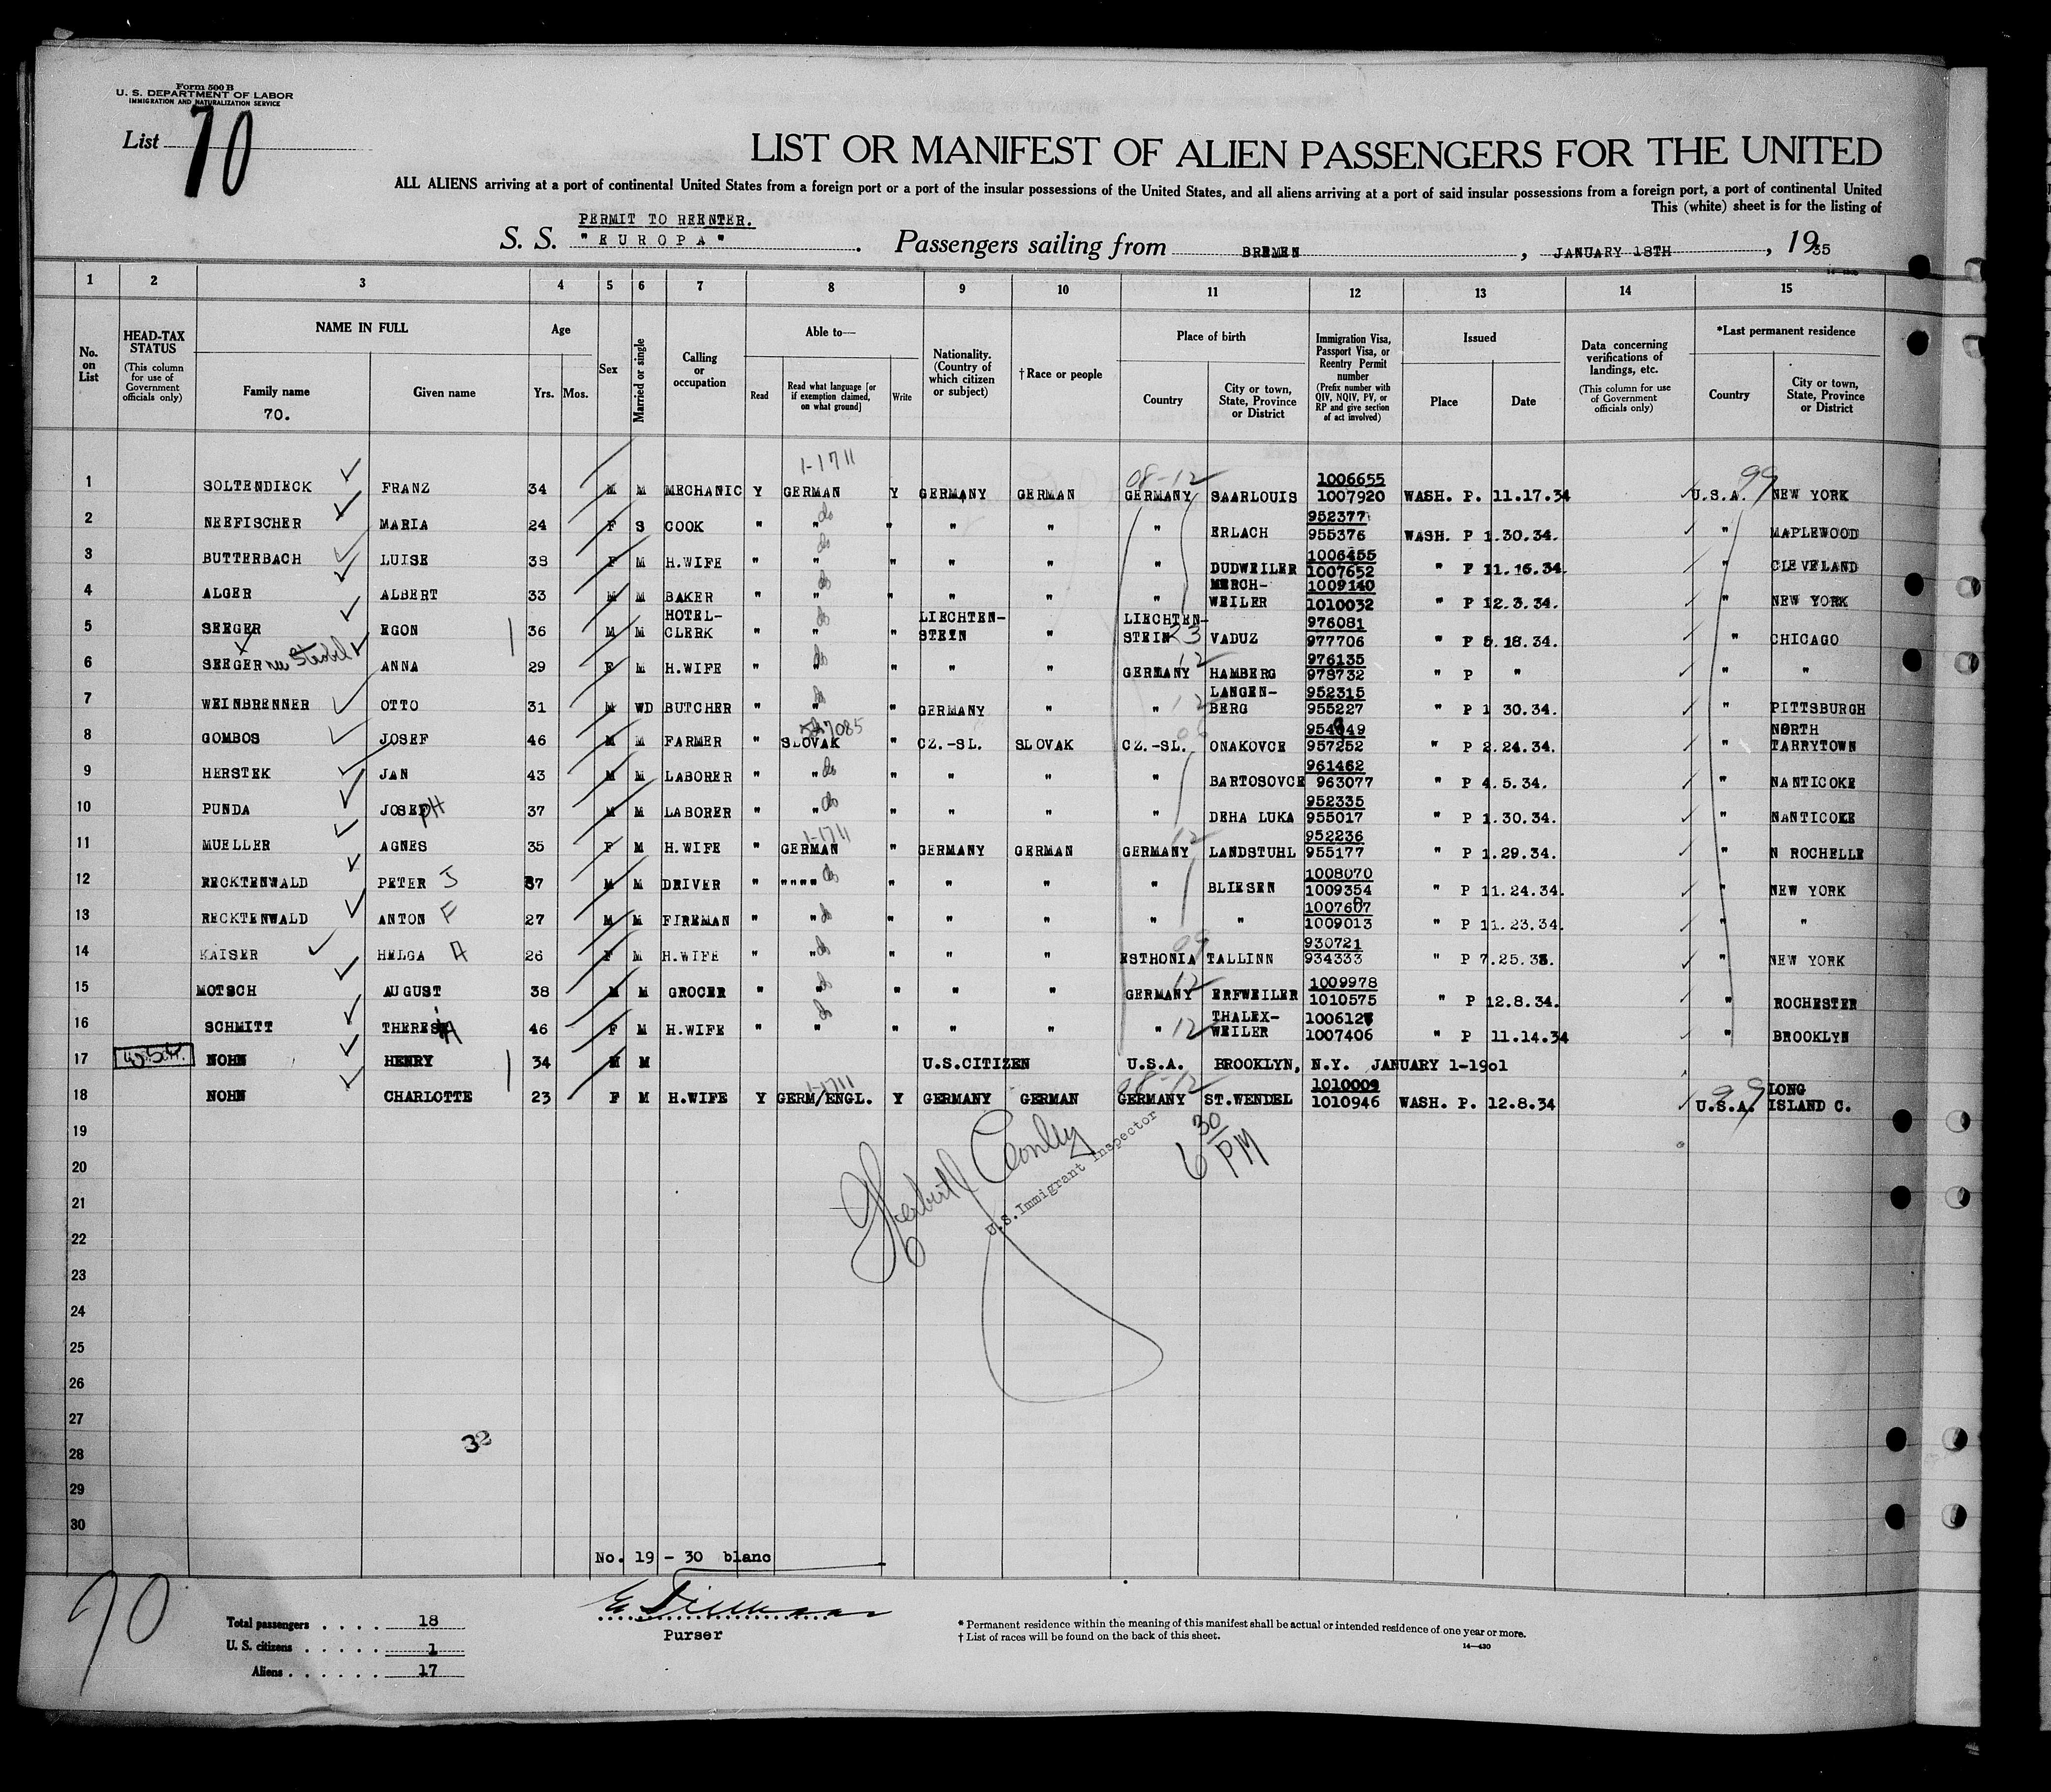 Form 500 B
U. S. DEPARTMENT OF LABOR
IMMIGRATION AND NATURALIZATION SERVICE
List 70
LIST OR MANIFEST OF ALIEN PASSENGERS FOR THE UNITED
ALL ALIENS arriving at a port of continental United States from a foreign port or a port of the insular possessions of the United States, and all aliens arriving at a port of said insular possessions from a foreign port, a port of continental United
This (white) sheet is for the listing of
PERMIT TO REENTER.
S. S. "EUROPA" . Passengers sailing from BREMEN , JANUARY 18TH , 1935
1 2 3 4 5 6 7 8 9 10 11 12 13 14 15
No. on List
HEAD-TAX STATUS (This column for use of Government officials only)
NAME IN FULL
Family name
70.
Given name
Age
Yrs. Mos.
Sex
Married or single
Calling or occupation
Able to—
Read
Read what language [or if exemption claimed, on what ground]
Write
Nationality. (Country of which citizen or subject)
†Race or people
Place of birth
Country
City or town, State, Province or District
Immigration Visa, Passport Visa, or Reentry Permit number (Prefix number with QIV, NQIV, PV, or RP and give section of act involved)
Issued
Place
Date
Data concerning verifications of landings, etc. (This column for use of Government officials only)
*Last permanent residence
Country
City or town, State, Province or District
1-1711 08-12 99
1 SOLTENDIECK FRANZ 34 M M MECHANIC Y GERMAN Y GERMANY GERMAN GERMANY SAARLOUIS 1006655 1007920 WASH. P. 11.17.34 U.S.A. NEW YORK
2 NEEFISCHER MARIA 24 F S COOK " " do " " " " ERLACH 952377 955376 WASH. P 1.30.34. " MAPLEWOOD
3 BUTTERBACH LUISE 38 F M H.WIFE " " do " " " " DUDWEILER 1006455 1007652 " P 11.16.34. " CLEVELAND
4 ALGER ALBERT 33 M M BAKER " " do " " " " MERCH-WEILER 1009140 1010032 " P 12.3.34. " NEW YORK
5 SEEGER EGON 36 M M HOTEL-CLERK " " do " LIECHTEN-STEIN " LIECHTEN-STEIN 23 VADUZ 976081 977706 " P 5.18.34. " CHICAGO
6 SEEGER nee ANNA 29 F M H.WIFE " " do " " " GERMANY 12 HAMBERG 976135 978732 " P " " "
7 WEINBRENNER OTTO 31 M WD BUTCHER " " do " GERMANY " " 12 LANGEN-BERG 952315 955227 " P 1 30.34. " PITTSBURGH
8 GOMBOS JOSEF 46 M M FARMER " SLOVAK 7085 " CZ.-SL. SLOVAK CZ.-SL. ONAKOVCE 954949 957252 " P 2.24.34. " NORTH TARRYTOWN
9 HERSTEK JAN 43 M M LABORER " " do " " " " BARTOSOVCE 961462 963077 " P 4.5.34. " NANTICOKE
10 PUNDA JOSEPH 37 M M LABORER " " do " " " " DEHA LUKA 952335 955017 " P 1.30.34. " NANTICOKE
11 MUELLER AGNES 35 F M H.WIFE " GERMAN 1-1711 " GERMANY GERMAN GERMANY 12 LANDSTUHL 952236 955177 " P 1.29.34. " N ROCHELLE
12 RECKTENWALD PETER J 37 M M DRIVER " """" do " " " " BLIESEN 1008070 1009354 " P 11.24.34. " NEW YORK
13 RECKTENWALD ANTON F 27 M M FIREMAN " " do " " " " " 1007607 1009013 " P 11.23.34. " "
14 KAISER HELGA A 26 F M H.WIFE " " do " " " ESTHONIA 09 TALLINN 930721 934333 " P 7.25.33. " NEW YORK
15 MOTSCH AUGUST 38 M M GROCER " " do " " " GERMANY 12 ERFWEILER 1009978 1010575 " P 12.8.34. " ROCHESTER
16 SCHMITT THERESIA 46 F M H.WIFE " " do " " " " 12 THALEX-WEILER 1006127 1007406 " P 11.14.34 " BROOKLYN
17 NOHN HENRY 34 M M U.S.CITIZEN U.S.A. BROOKLYN, N.Y. JANUARY 1-1901
18 NOHN CHARLOTTE 23 F M H.WIFE Y GERM/ENGL. 1-1711 Y GERMANY GERMAN GERMANY 08-12 ST.WENDEL 1010009 1010946 WASH. P. 12.8.34 U.S.A. 99 LONG ISLAND C.
19
20
21
22
23
24
25
26
27
28
29
30
Herbert J Conley
U.S. Immigrant Inspector
6 30 PM
32
No. 19 - 30 blanc
70
Total passengers . . . . 18
U. S. citizens . . . . . 1
Aliens . . . . . . 17
Purser
* Permanent residence within the meaning of this manifest shall be actual or intended residence of one year or more.
† List of races will be found on the back of this sheet.
14—430